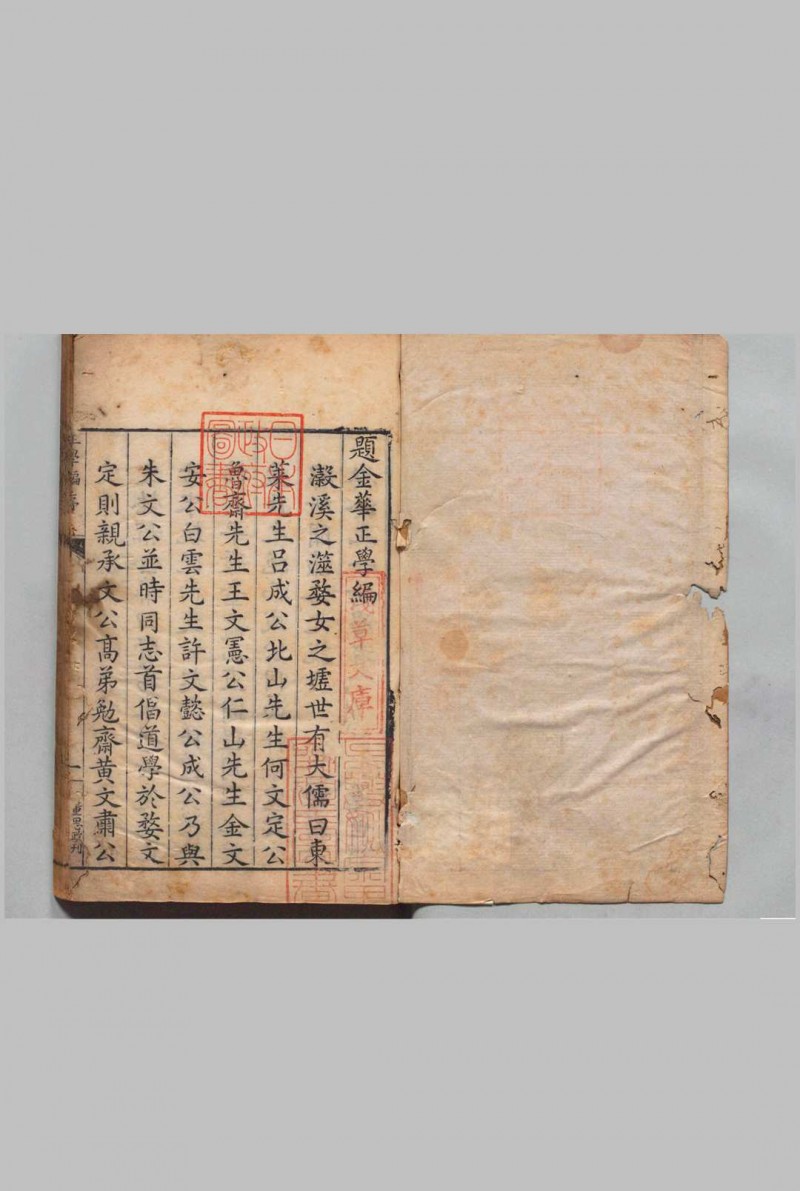 題金華正學編
瀫溪之澨婺女之墟世有大儒曰東
萊先生吕成公北山先生何文定公
魯齋先生王文憲公仁山先生金文
安公白雲先生許文懿公成公乃與
朱文公並時同志首倡道學於婺文
定則親承文公高弟勉齋黄文肅公
日本
政府
圖書
草文庫